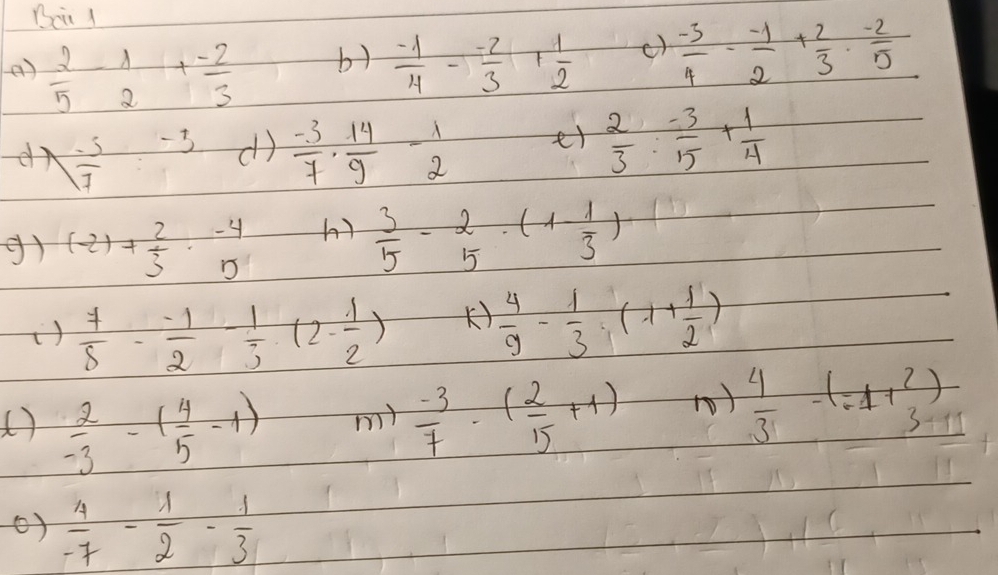 Bài 1
a) 2/5 - 1/2 + -2/3 b) -1/4 - -2/3 + 1/2 c) -3/4 - -1/2 + 2/3 . -2/5
d) -3/7 : -3 d) -3/7 . 14/9 - 1/2 e) 2/3 : -3/15 + 1/4
g) (-2) + 2/3 . -4/5 h) 3/5 - 2/5 . (1 - 1/3)
i) 7/8 - -1/2 - 1/3 . (2 - 1/2) k) 4/9 - 1/3 . (1 + 1/2)
l) 2/-3 - (4/5 - 1) m) -3/7 - (2/15 + 1) n) 4/3 - (-1 + 2/3)
o) 4/-7 - 1/2 - 1/3